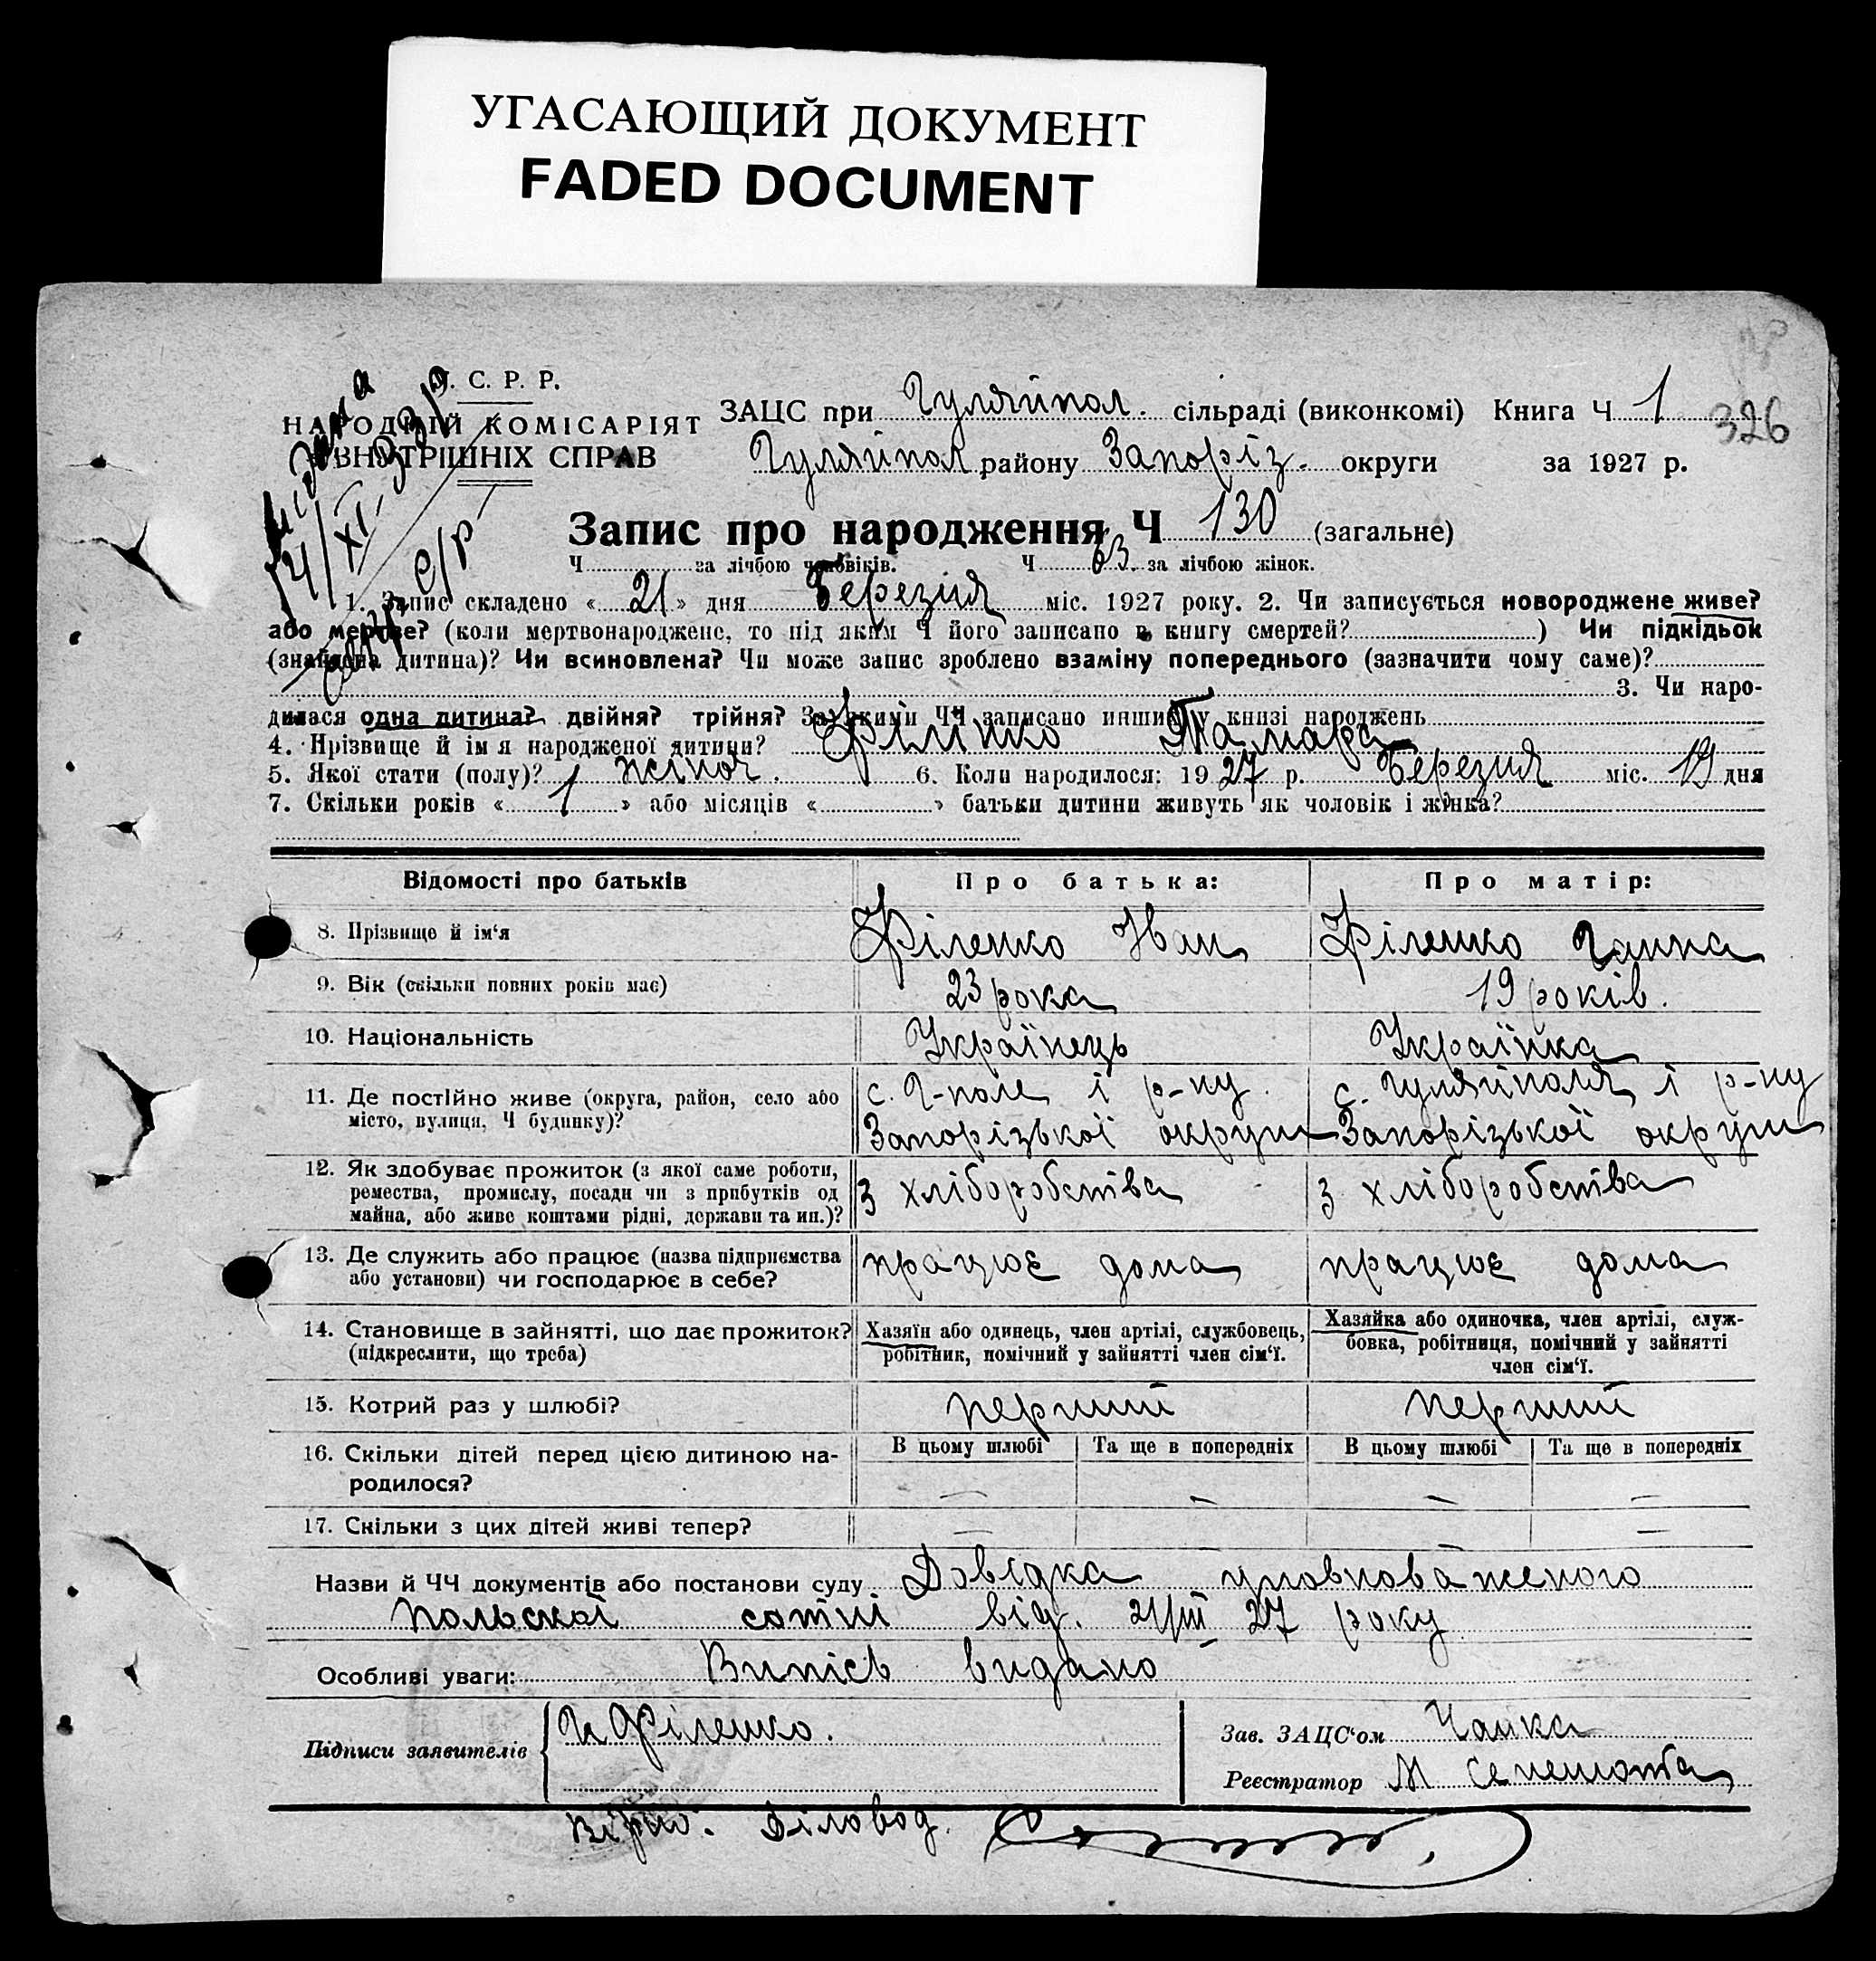 УГАСАЮЩИЙ ДОКУМЕНТ
FADED DOCUMENT
У. С. Р. Р.
НАРОДНІЙ КОМІСАРІЯТ
ВНУТРІШНІХ СПРАВ
ЗАЦС при Гуляйпол. сільраді (виконкомі) Книга Ч 1
326
Гуляйпол району Запоріз. округи за 1927 р.
Запис про народження Ч 130 (загальне)
Ч за лічбою чоловіків. Ч 63 за лічбою жінок.
1. Запис складено « 21 » дня Березня міс. 1927 року. 2. Чи записується новороджене живе?
або мертве? (коли мертвонароджене, то під яким Ч його записано в книгу смертей? ) Чи підкідьок
(знайдена дитина)? Чи всиновлена? Чи може запис зроблено взаміну попереднього (зазначити чому саме)?
3. Чи наро-
дилася одна дитина? двійня? трійня? За якими ЧЧ записано инших у книзі народжень
4. Прізвище й ім я народженої дитини? Філінко Тамара
5. Якої стати (полу)? 1 жіноч. 6. Коли народилося: 19 27 р. Березня міс. 19 дня
7. Скільки років « 1 » або місяців « » батьки дитини живуть як чоловік і жінка?
Відомості про батьків Про батька: Про матір:
8. Прізвище й ім‘я Філенко Іван Філенко Ганна
9. Вік (скільки повних років має) 23 рока 19 років.
10. Національність Українець Українка
11. Де постійно живе (округа, район, село або місто, вулиця, Ч будинку)? с. Г-поле і р-ну с. Гуляйполя і р-ну
Запорізької округи Запорізької округи
12. Як здобуває прожиток (з якої саме роботи,
ремества, промислу, посади чи з прибутків од
майна, або живе коштами рідні, держави та ин.)? з хліборобства з хліборобства
13. Де служить або працює (назва підприємства
або установи) чи господарює в себе? працює дома працює дома
14. Становище в зайнятті, що дає прожиток?
(підкреслити, що треба)
Хазяїн або одинець, член артілі, службовець,
робітник, помічний у зайнятті член сім‘ї.
Хазяйка або одиночка, член артілі, служ-
бовка, робітниця, помічний у зайнятті
член сім‘ї.
15. Котрий раз у шлюбі? перший перший
16. Скільки дітей перед цією дитиною на-
родилося?
В цьому шлюбі Та ще в попередніх В цьому шлюбі Та ще в попередніх
— — — —
17. Скільки з цих дітей живі тепер? — —
Назви й ЧЧ документів або постанови суду Довідка уповноваженого
польскої сотні від. 21/III 27 року
Особливі уваги: Випісь видано
Підписи заявителів И Філенко.
Зав. ЗАЦС‘ом
Реєстратор М
Вірно: Діловод.